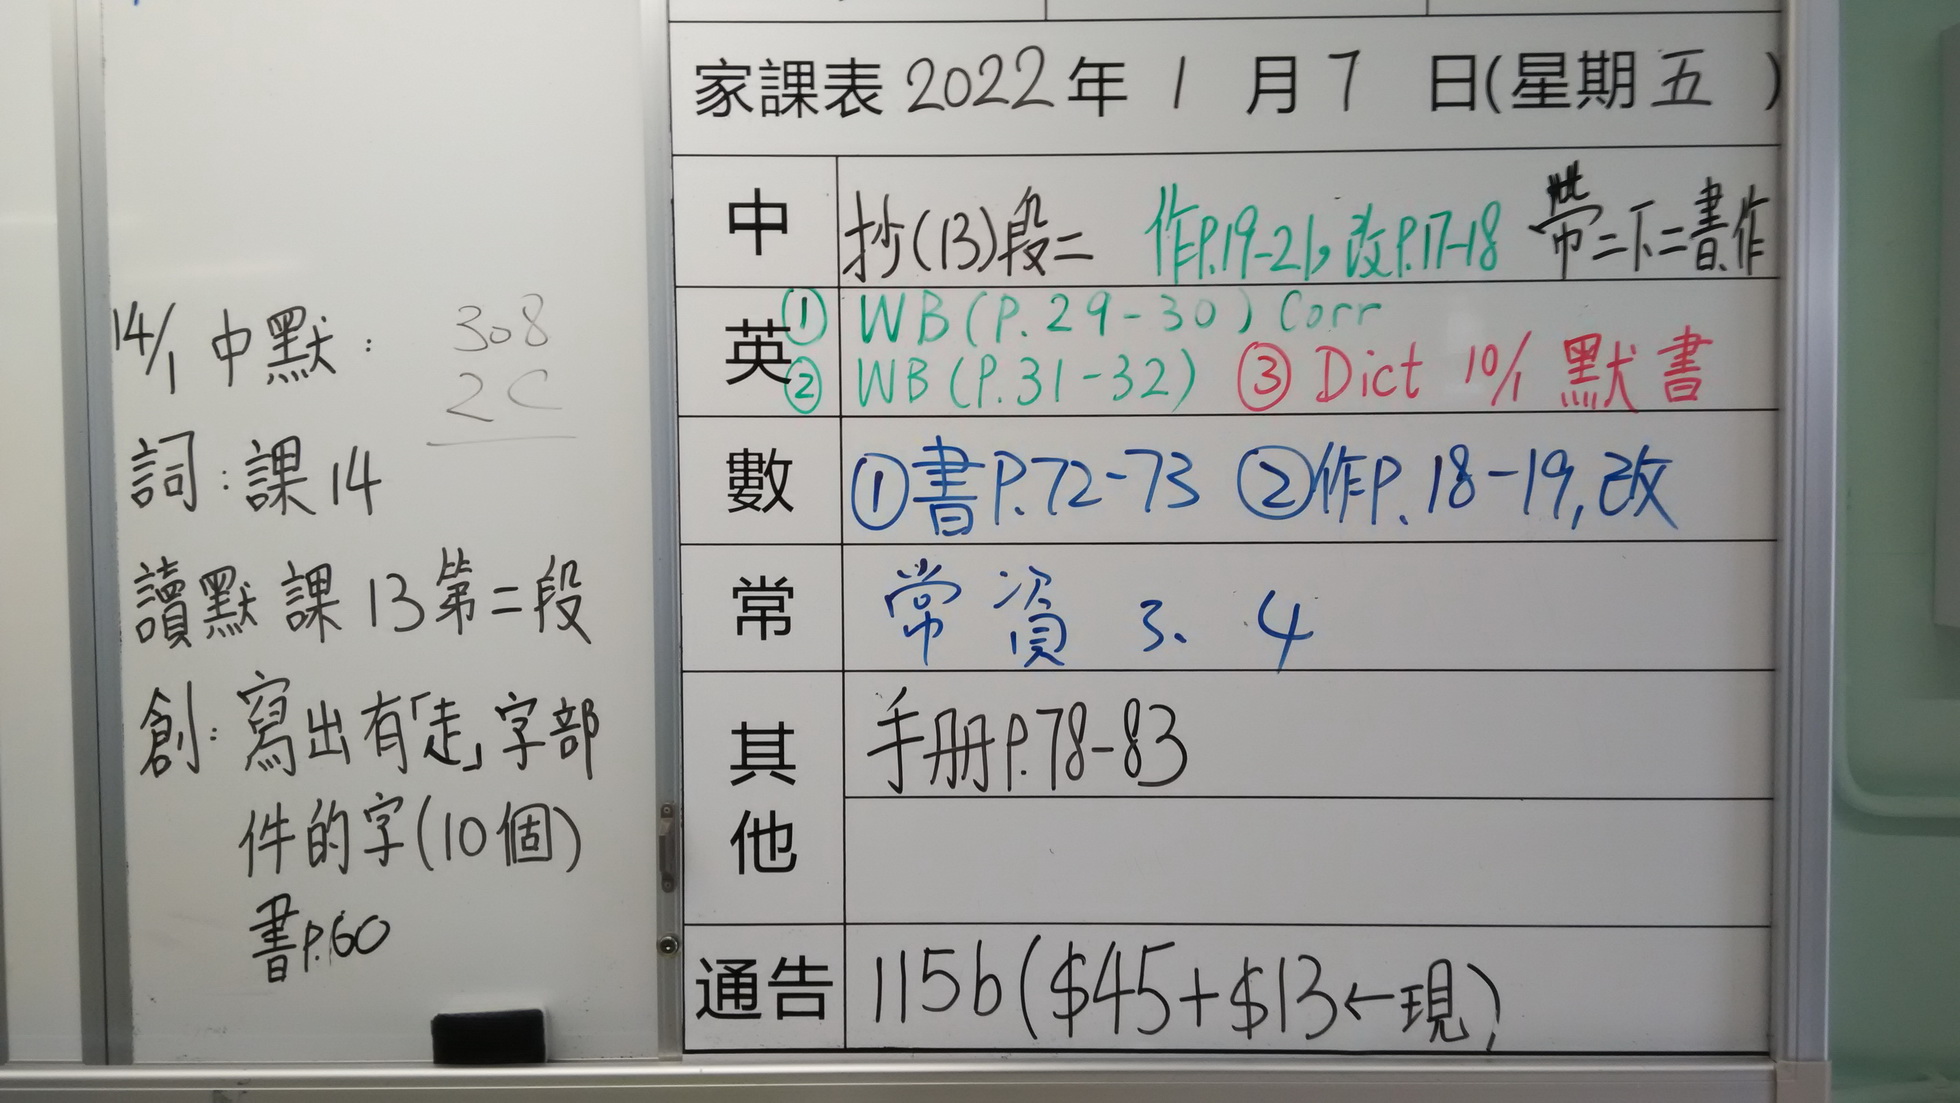 14/1 中默：
308
2C
詞：課14
讀默 課13第二段
創：寫出有「走」字部
件的字(10個)
書P.60
家課表 2022年 1 月 7 日(星期五)
中 抄(13)段二 作P.19-21, 改P.17-18 帶二下二書.作
英 ① WB (P.29-30) Corr
② WB (P.31-32) ③ Dict 10/1 默書
數 ①書P.72-73 ②作P.18-19, 改
常 常資 3、4
其他 手册P.78-83
通告 115b ($45+$13←現)